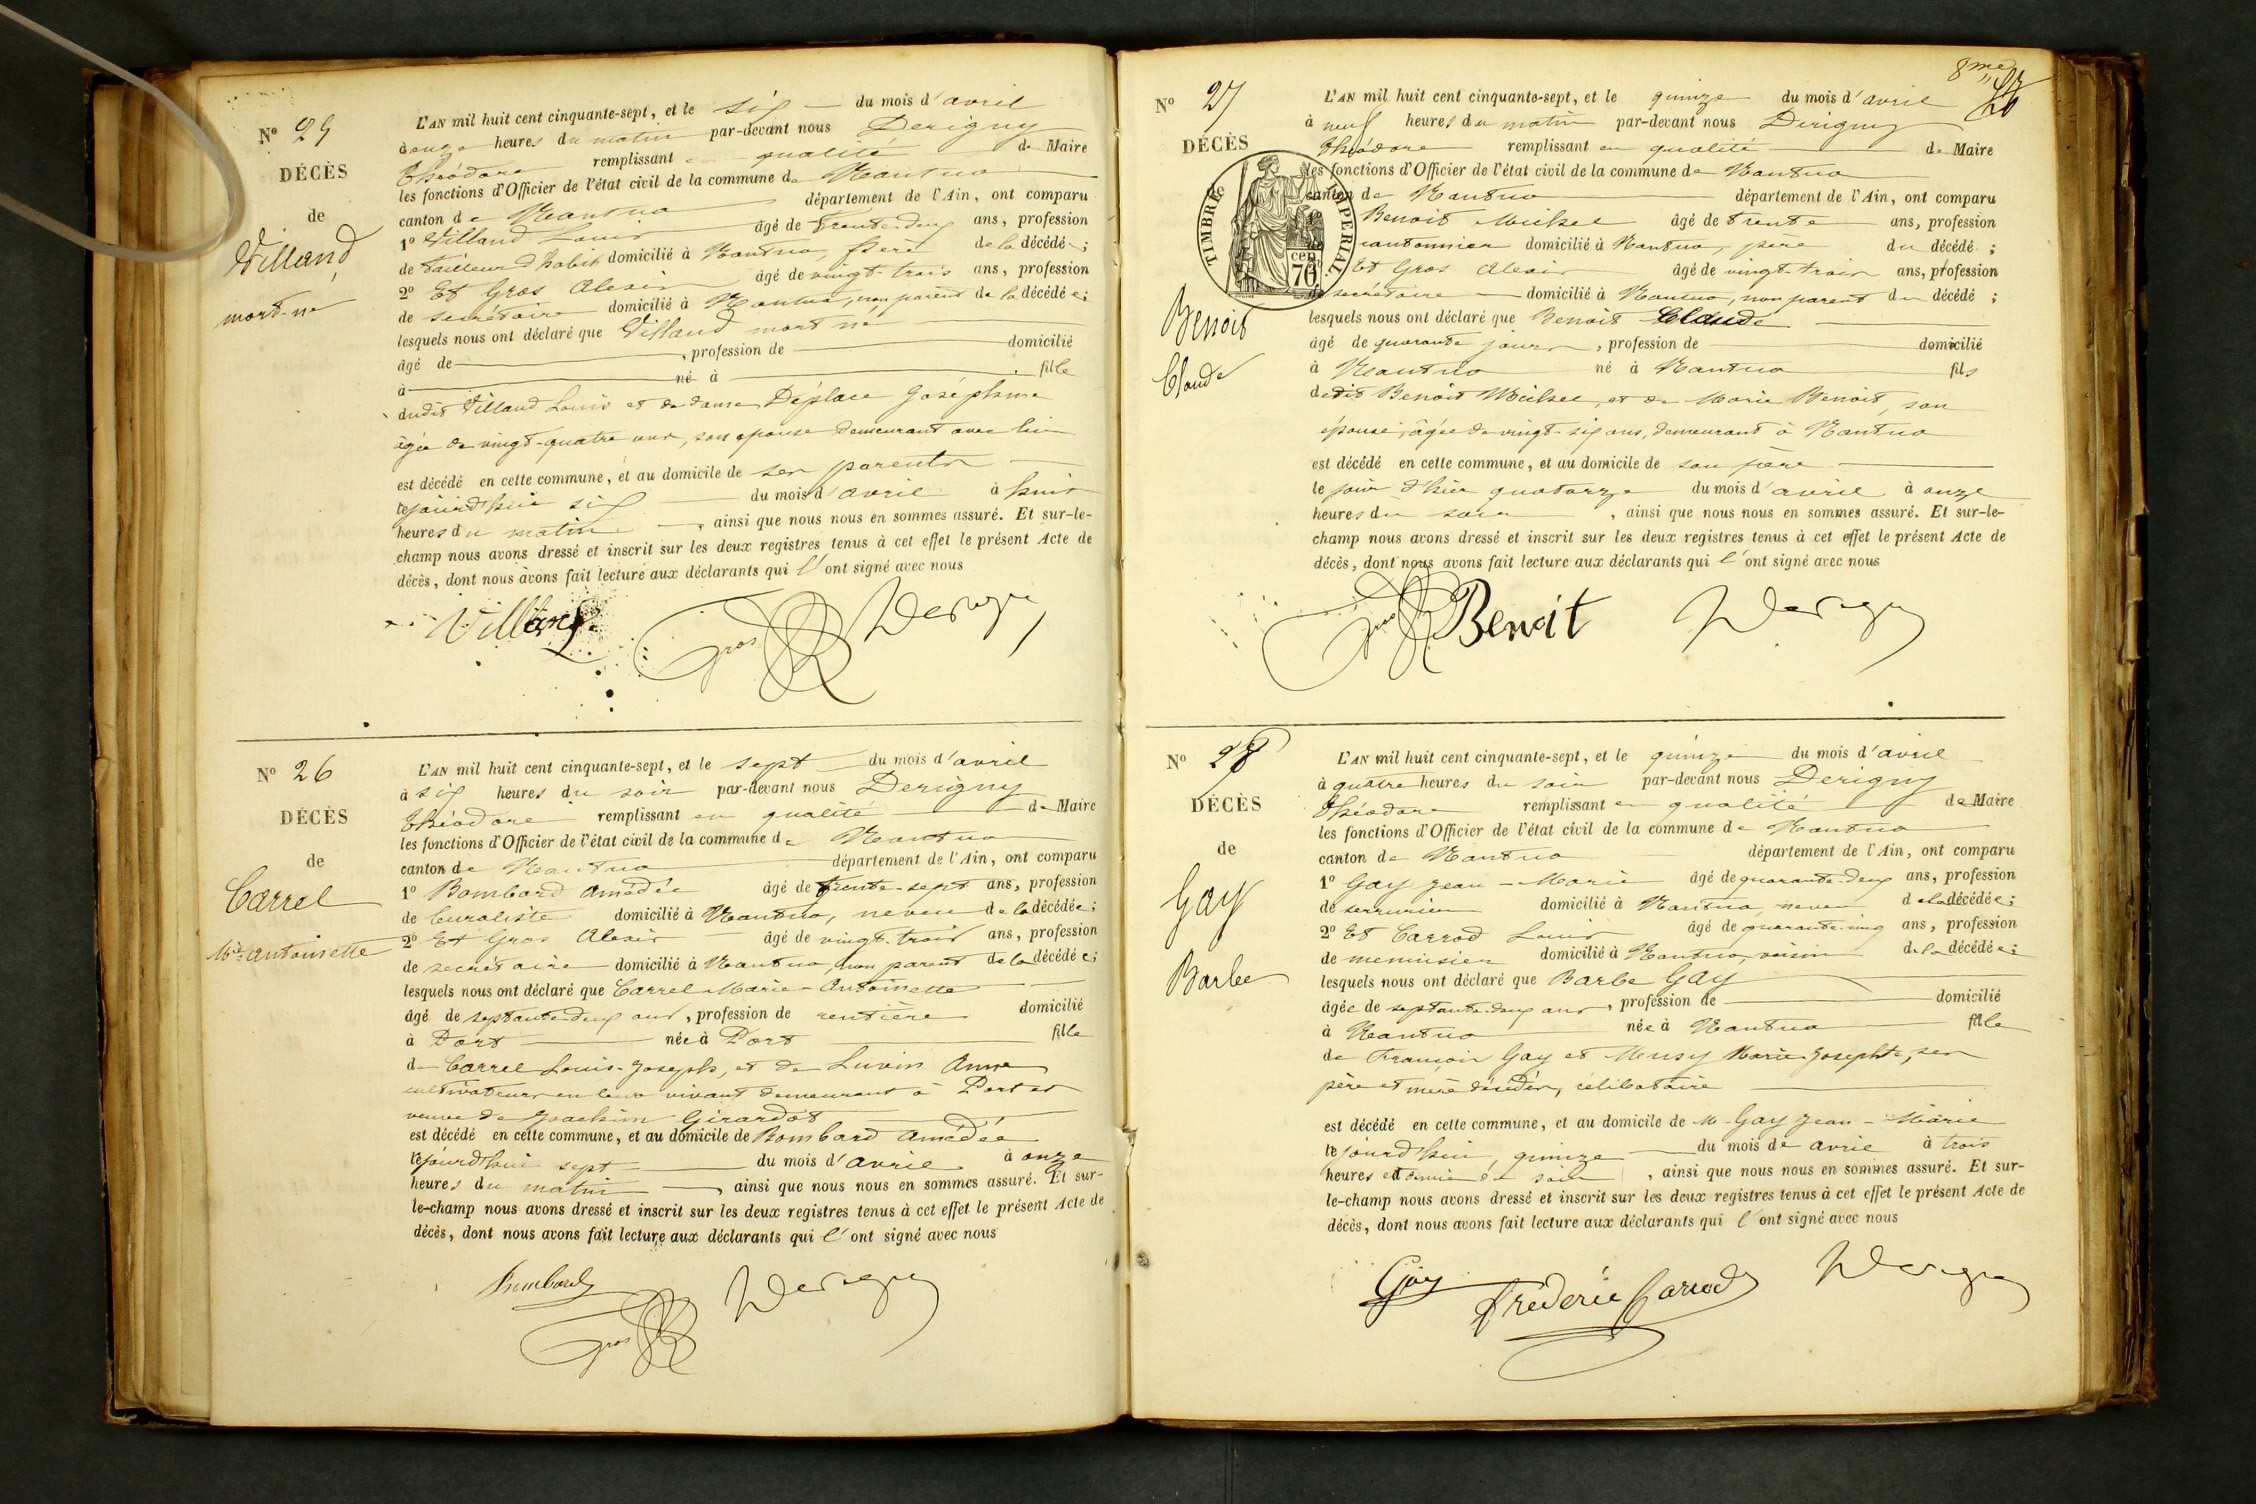 Nº 25
DÉCÈS
de
Villand
mort-né
L'AN mil huit cent cinquante-sept, et le six du mois d'avril
à onze heures du matin par-devant nous Derigny
Théodore remplissant en qualité de Maire
les fonctions d'Officier de l'état civil de la commune de Nantua
canton de Nantua département de l'Ain, ont comparu
1º Villand Louis âgé de trente-deux ans, profession
de tailleur d'habits domicilié à Nantua, père de la décédée;
2º Et Gros Alexis âgé de vingt-trois ans, profession
de secrétaire domicilié à Nantua, non parent de la décédée;
lesquels nous ont déclaré que Villand mort né
âgé de , profession de domicilié
à né à fille
dudit Villand Louis et de dame Déplace Joséphine
âgée de vingt-quatre ans, son épouse demeurant avec lui
est décédé en cette commune, et au domicile de ses parents
le jourd'hui six du mois d'avril à huit
heures du matin , ainsi que nous nous en sommes assuré. Et sur-le-
champ nous avons dressé et inscrit sur les deux registres tenus à cet effet le présent Acte de
décès, dont nous avons fait lecture aux déclarants qui l'ont signé avec nous
Villand Gros Derigny
Nº 26
DÉCÈS
de
Carrel
Mie Antoinette
L'AN mil huit cent cinquante-sept, et le sept du mois d'avril
à six heures du soir par-devant nous Derigny
Théodore remplissant en qualité de Maire
les fonctions d'Officier de l'état civil de la commune de Nantua
canton de Nantua département de l'Ain, ont comparu
1º Bombard Amédée âgé de trente-sept ans, profession
de buraliste domicilié à Nantua, neveu de la décédée;
2º Et Gros Alexis âgé de vingt-trois ans, profession
de secrétaire domicilié à Nantua, non parent de la décédée;
lesquels nous ont déclaré que Carrel Marie-Antoinette
âgé de septante-deux ans, profession de rentière domicilié
à Port née à Port fille
de Carrel Louis-Joseph, et de Luvin Anne
cultivateurs en leur vivant demeurant à Port et
veuve de Joachim Girardot
est décédé en cette commune, et au domicile de Bombard Amédée
le jourd'hui sept du mois d'avril à onze
heures du matin , ainsi que nous nous en sommes assuré. Et sur-
le-champ nous avons dressé et inscrit sur les deux registres tenus à cet effet le présent Acte de
décès, dont nous avons fait lecture aux déclarants qui l'ont signé avec nous
Bombard Gros Derigny
8me
26
Nº 27
DÉCÈS
TIMBRE IMPERIAL
70 cen
Benoit
Claude
L'AN mil huit cent cinquante-sept, et le quinze du mois d'avril
à neuf heures du matin par-devant nous Derigny
Théodore remplissant en qualité de Maire
les fonctions d'Officier de l'état civil de la commune de Nantua
canton de Nantua département de l'Ain, ont comparu
Benoit Michel âgé de trente ans, profession
cantonnier domicilié à Nantua, père du décédé ;
Et Gros Alexis âgé de vingt-trois ans, profession
de secrétaire domicilié à Nantua, non parent du décédé ;
lesquels nous ont déclaré que Benoit Claude
âgé de quarante jours , profession de domicilié
à Nantua né à Nantua fils
dudit Benoit Michel, et de Marie Benoit, son
épouse, âgée de vingt-six ans, demeurant à Nantua
est décédé en cette commune, et au domicile de son père
le jour d'hier quatorze du mois d'avril à onze
heures du soir , ainsi que nous nous en sommes assuré. Et sur-le-
champ nous avons dressé et inscrit sur les deux registres tenus à cet effet le présent Acte de
décès, dont nous avons fait lecture aux déclarants qui l'ont signé avec nous
Gros Benoit Derigny
Nº 28
DÉCÈS
de
Gay
Barbe
L'AN mil huit cent cinquante-sept, et le quinze du mois d'avril
à quatre heures du soir par-devant nous Derigny
Théodore remplissant en qualité de Maire
les fonctions d'Officier de l'état civil de la commune de Nantua
canton de Nantua département de l'Ain, ont comparu
1º Gay Jean-Marie âgé de quarante-deux ans, profession
de serrurier domicilié à Nantua, neveu de la décédée;
2º Et Carrod Louis âgé de quarante-cinq ans, profession
de menuisier domicilié à Nantua, voisin de la décédée;
lesquels nous ont déclaré que Barbe Gay
âgée de septante-deux ans, profession de domicilié
à Nantua née à Nantua fille
de François Gay et Musy Marie Josephte, ses
père et mère décédés, célibataire
est décédé en cette commune, et au domicile de M Gay Jean-Marie
le jourd'hui, quinze du mois de avril à trois
heures et demie du soir , ainsi que nous nous en sommes assuré. Et sur-
le-champ nous avons dressé et inscrit sur les deux registres tenus à cet effet le présent Acte de
décès, dont nous avons fait lecture aux déclarants qui l'ont signé avec nous
Gay Fréderic Carrod Derigny